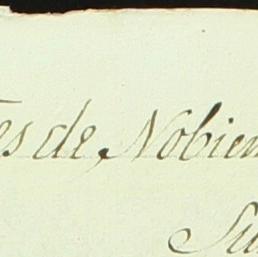 es de, Nobiem
Su